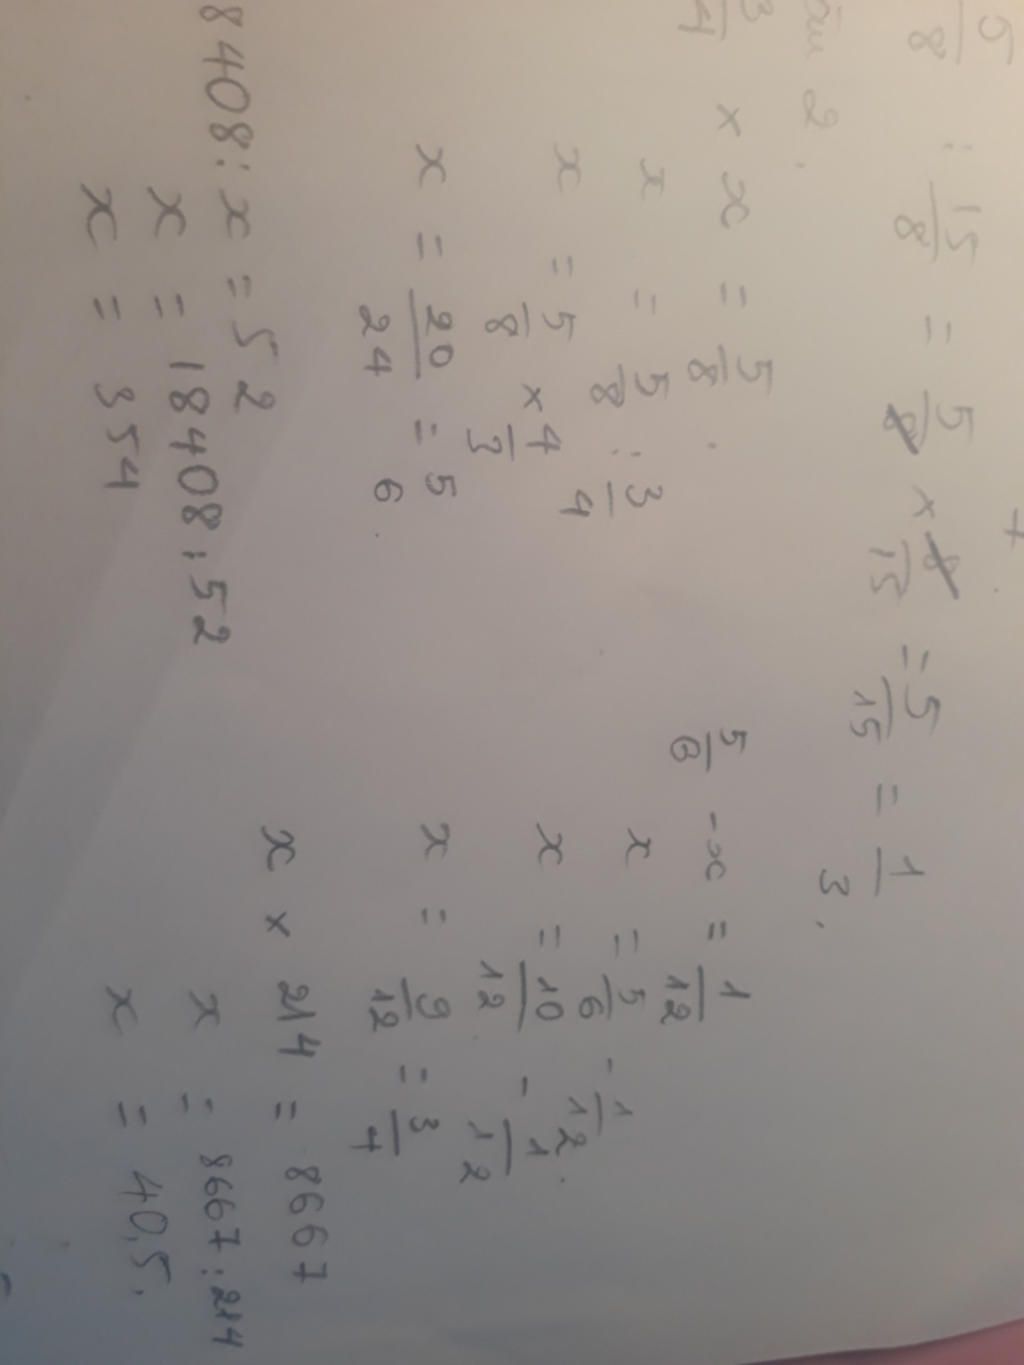 5/8 : 15/8 = 5/8 × 8/15 = 5/15 = 1/3.
2.
3/4 × x = 5/8.
x = 5/8 : 3/4
x = 5/8 × 4/3
x = 20/24 = 5/6.
5/6 - x = 1/12
x = 5/6 - 1/12.
x = 10/12 - 1/12
x = 9/12 = 3/4
8408 : x = 52
x = 18408 : 52
x = 354
x × 214 = 8667
x = 8667 : 214
x = 40,5.